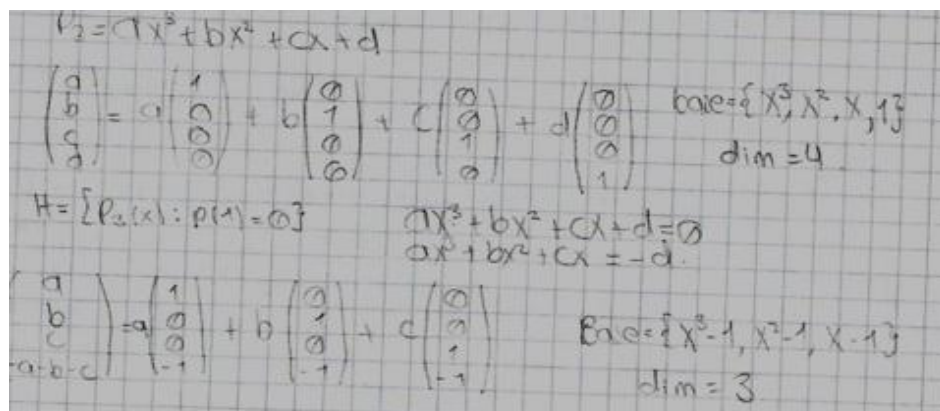 P₃ = ax³ + bx² + cx + d
(a b c d) = a (1 0 0 0) + b (0 1 0 0) + c (0 0 1 0) + d (0 0 0 1) base={x³, x², x, 1}
dim = 4
H = {P₃(x) : p(1) = 0} ax³ + bx² + cx + d = 0
ax³ + bx² + cx = -d
(a b c -a-b-c) = a (1 0 0 -1) + b (0 1 0 -1) + c (0 0 1 -1) Base={x³-1, x²-1, x-1}
dim = 3